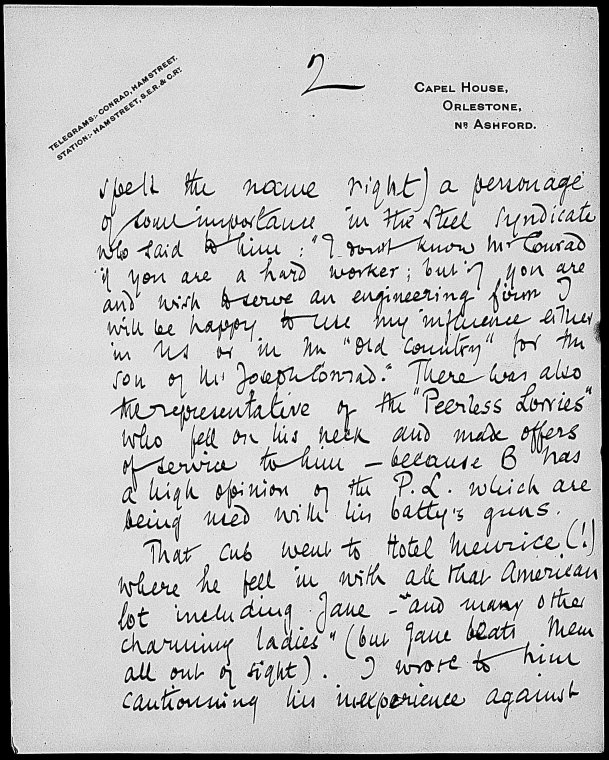 2
TELEGRAMS:- CONRAD, HAMSTREET.
STATION:- HAMSTREET, S.E.R. & C.RY.
CAPEL HOUSE,
ORLESTONE,
NR ASHFORD.
spelt the name right) a personage
of some importance in the Steel Syndicate
who said to him: "I don't know Mr Conrad
if you are a hard worker; but if you are
and wish to serve an engineering firm I
will be happy to use my influence either
in US or in the "Old Country" for the
son of Mr Joseph Conrad." There was also
the representative of the "Peerless Lorries"
who fell on his neck and made offers
of service to him — because B has
a high opinion of the P. L. which are
being used with his batty's guns.
That cub went to Hotel Meurice (!)
where he fell in with all that American
lot including Jane — "and many other
charming ladies" (but Jane beats them
all out of sight). I wrote to him
cautionning his inexperience against